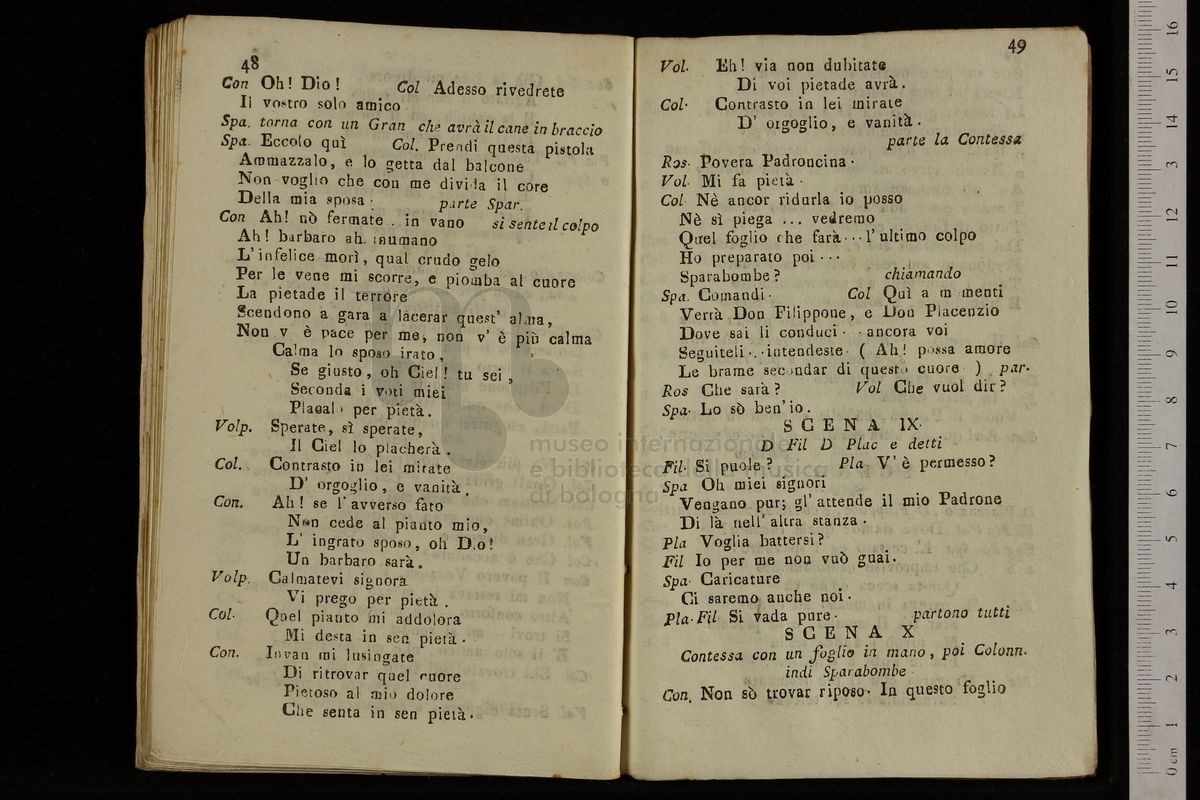 48
Con Oh! Dio! Col Adesso rivedrete
Il vostro solo amico
Spa. torna con un Gran che avrà il cane in braccio
Spa. Eccolo quì Col. Prendi questa pistola
Ammazzalo, e lo getta dal balcone
Non voglio che con me divida il core
Della mia sposa. parte Spar.
Con Ah! nò fermate . in vano si sente il colpo
Ah! barbaro ah. inumano
L' infelice morì, qual crudo gelo
Per le vene mi scorre, e piomba al cuore
La pietade il terrore
Scendono a gara a lacerar quest' alma,
Non v è pace per me, non v' è più calma
Calma lo sposo irato,
Se giusto, oh Ciel! tu sei,
Seconda i voti miei
Placal per pietà.
Volp. Sperate, sì sperate,
Il Ciel lo placherà.
Col. Contrasto in lei mirate
D' orgoglio, e vanità.
Con. Ah! se l' avverso fato
Non cede al pianto mio,
L' ingrato sposo, oh D.o!
Un barbaro sarà.
Volp. Calmatevi signora
Vi prego per pietà.
Col. Quel pianto mi addolora
Mi desta in sen pietà.
Con. Invan mi lusingate
Di ritrovar quel cuore
Pietoso al mio dolore
Che senta in sen pietà.
49
Vol. Eh! via non dubitate
Di voi pietade avrà.
Col. Contrasto in lei mirate
D' orgoglio, e vanità.
parte la Contessa
Ros. Povera Padroncina.
Vol. Mi fa pietà.
Col Nè ancor ridurla io posso
Nè sì piega ... vedremo
Quel foglio che farà...l' ultimo colpo
Ho preparato poi...
Sparabombe? chiamando
Spa. Comandi. Col Quì a m menti
Verrà Don Filippone, e Don Placenzio
Dove sai li conduci. . ancora voi
Seguiteli...intendeste. ( Ah! possa amore
Le brame secondar di questo cuore ) par.
Ros Che sarà? Vol Che vuol dir?
Spa. Lo sò ben' io.
SCENA IX.
D Fil D Plac e detti
Fil. Si puole? Pla V' è permesso?
Spa Oh miei signori
Vengano pur; gl' attende il mio Padrone
Di là nell' altra stanza.
Pla Voglia battersi?
Fil Io per me non vuò guai.
Spa. Caricature
Ci saremo anche noi.
Pla. Fil Si vada pure. partono tutti
SCENA X
Contessa con un foglio in mano, poi Colonn.
indi Sparabombe
Con. Non sò trovar riposo. In questo foglio
museo internazionale
e biblioteca della musica
di bologna
0 cm 1 2 3 4 5 6 7 8 9 10 11 12 13 14 15 16